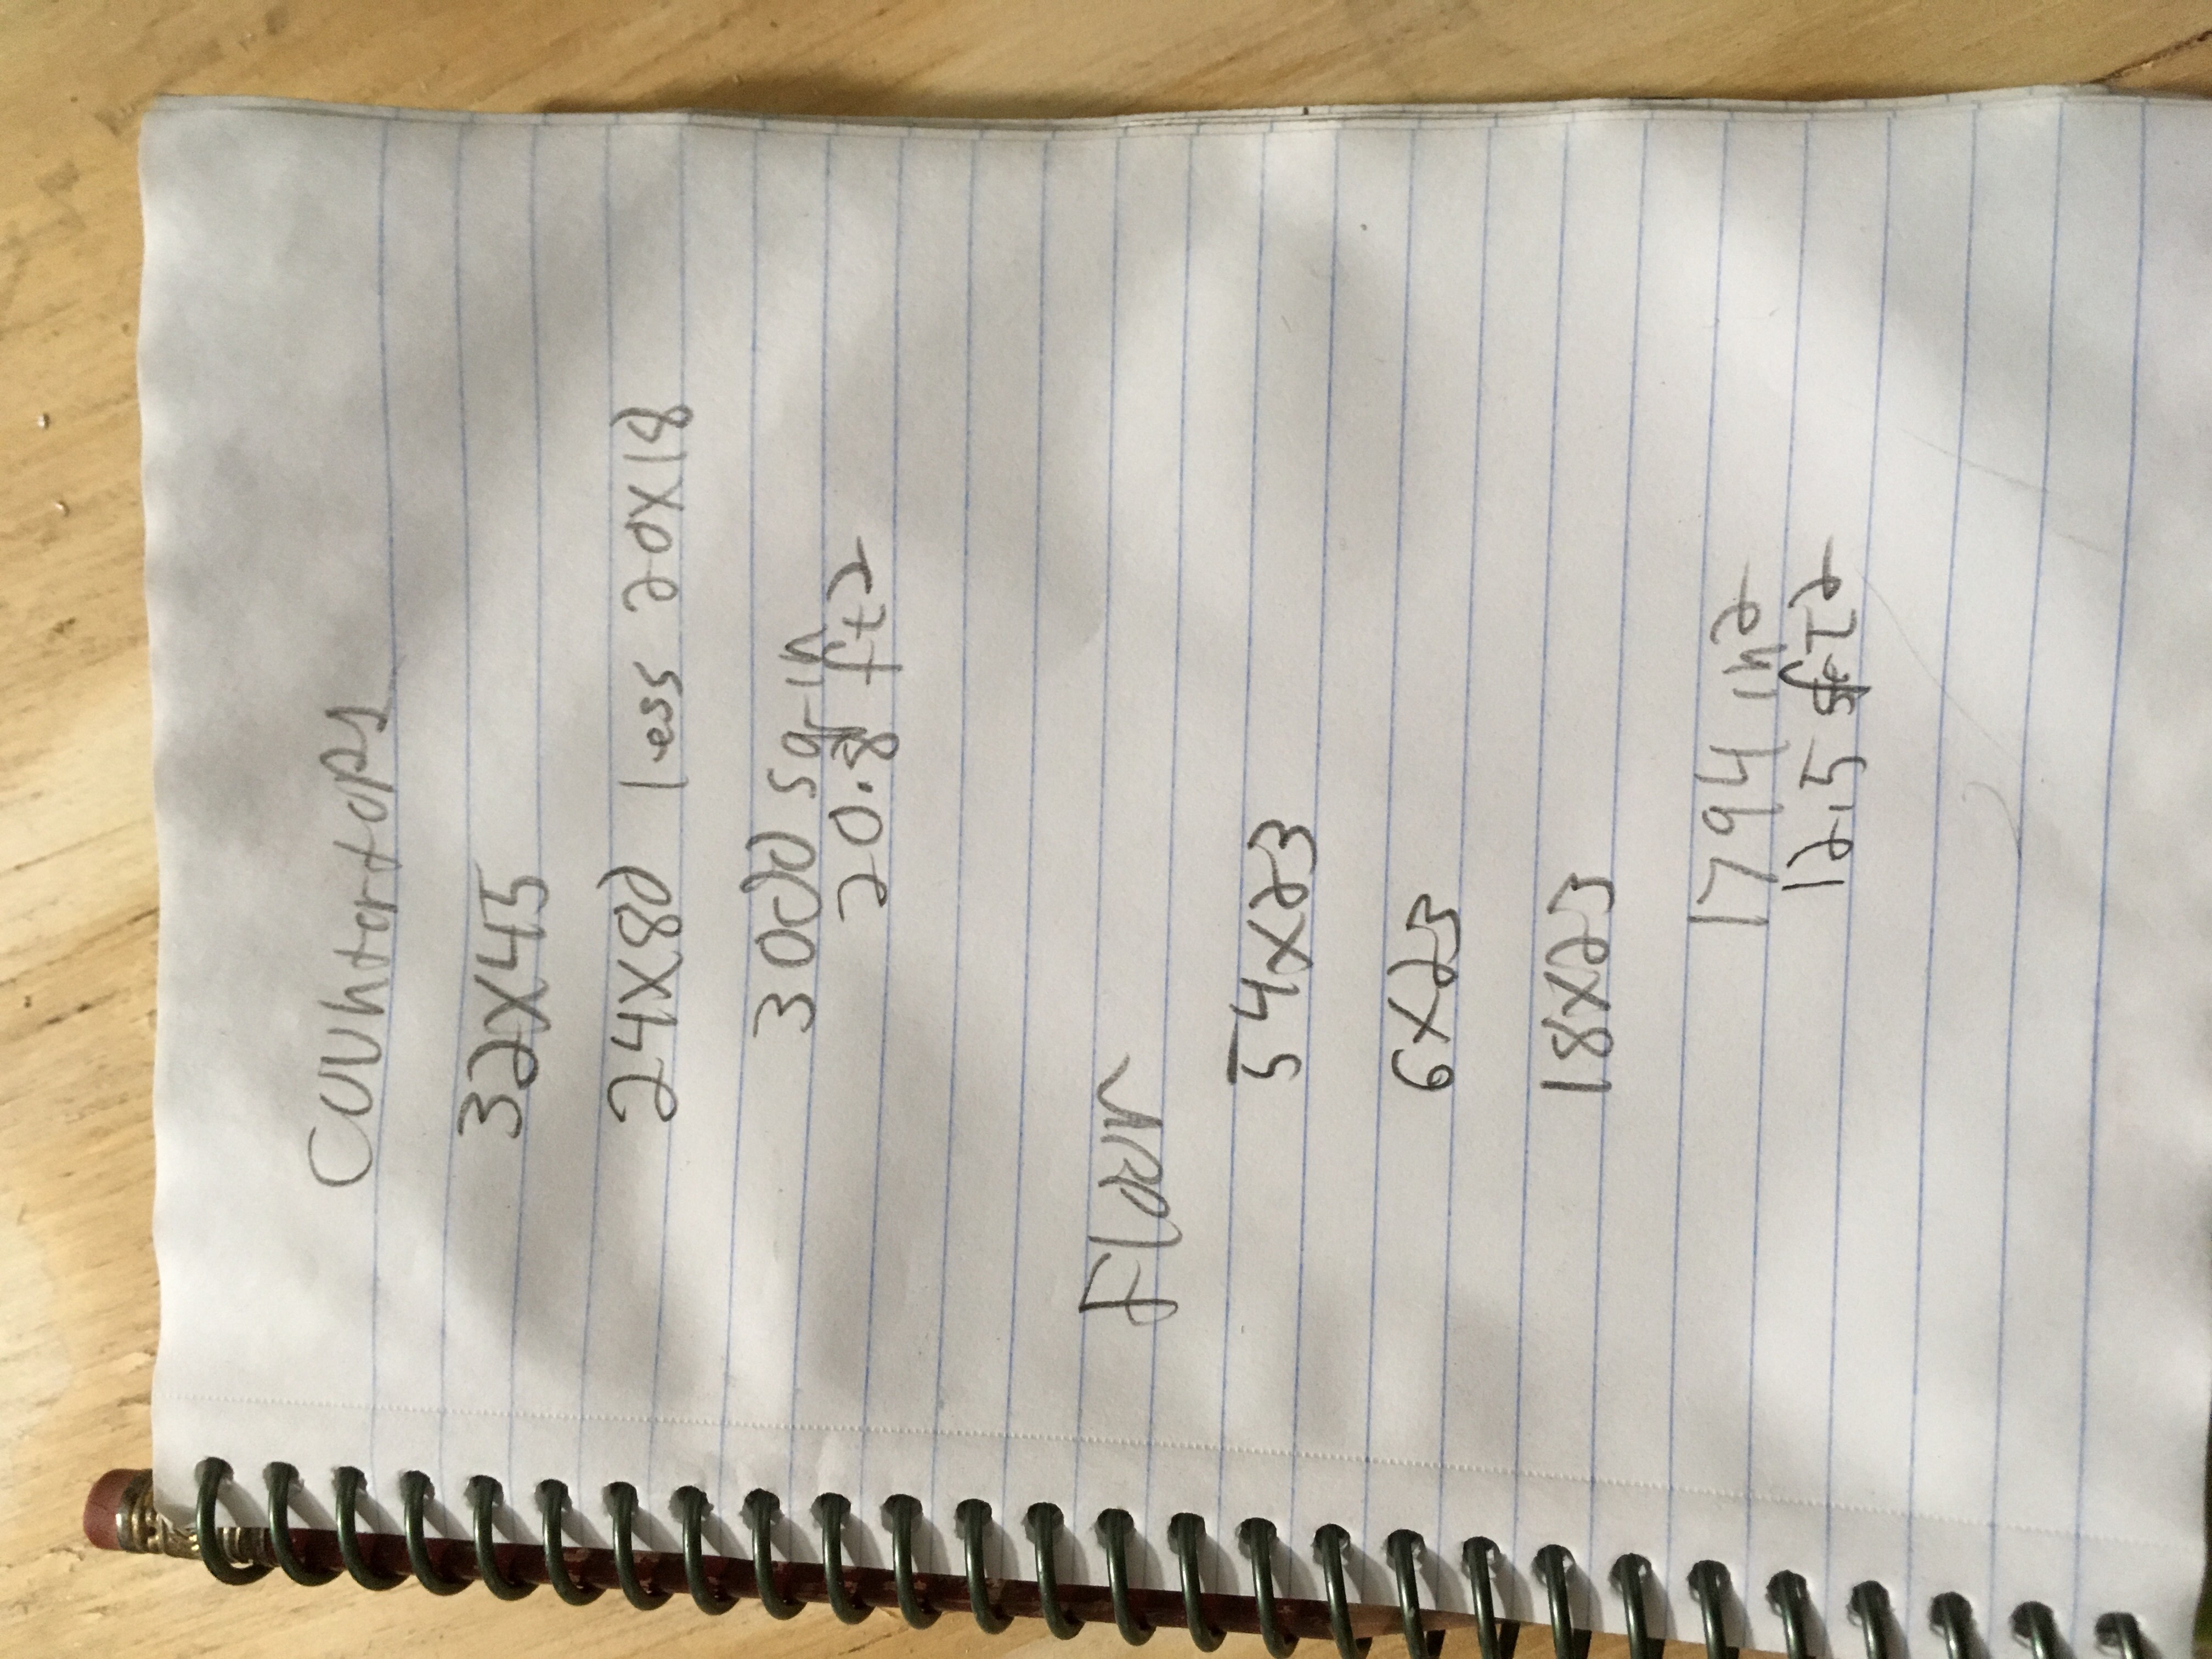 Countertops
32x45
24x80 less 20x18
3000 sqr in
20.8 ft2
Floor
54x23
6x23
18x23
1794 in2
12.5 ft2